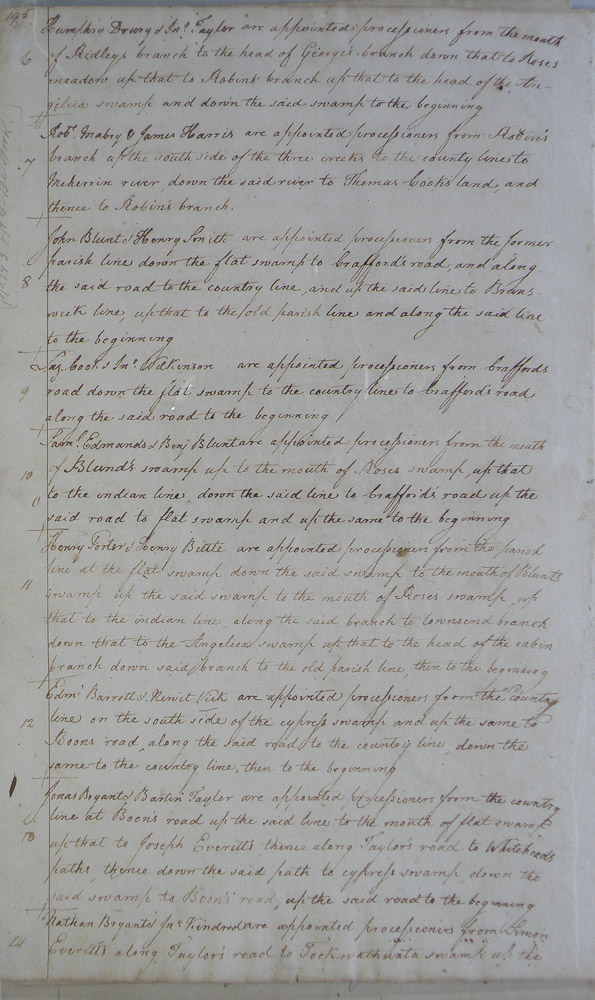 195
Humphry Drewry & Jno. Taylor are appointed processioners from the mouth
6 of Ridleys branch to the head of Georges branch down that to Roses
meadow up that to Robins branch up that to the head of the An-
gelica swamp and down the said swamp to the beginning
Robt. Mabry & James Harris are appointed processioners from Robin's
7 branch up the south side of the three creeks to the county line to
Meherrin river, down the said river to Thomas Cooks land, and
thence to Robin's branch.
John Blunt & Henry Smith are appointed processioners from the former
parish line down the flat swamp to Crafford's road, and along
8 the said road to the country line, and up the said line to Bruns
wick line, up that to the old parish line and along the said line
to the beginning
Laz Cook & Jno. Wilkinson are appointed processioners from Craffords
9 road down the flat swamp to the country line to Crafford's road
along the said road to the beginning
Saml. Edmunds & Benj Blunt are appointed processioners from the mouth
10 of Blunt's swamp up to the mouth of Roses swamp, up that
to the indian line, down the said line to Crafford's road up the
said road to flat swamp and up the same to the beginning
Henry Porter & Henry Bittle are appointed processioners from the parish
line at the flat swamp down the said swamp to the mouth of Blunts
11 swamp up the said swamp to the mouth of Rose's swamp, up
that to the indian line, along the said branch to townsend branch
down that to the Angelica swamp up that to the head of the cabin
branch down said branch to the old parish line, then to the beginning
Edmd Barrett & Newit Vick are appointed processioners from the country
12 line on the south side of the cypress swamp and up the same to
Boons road, along the said road to the country line, down the
same to the country line, then to the beginning
Jonas Bryant & Bartin Taylor are appointed processioners from the country
13 line at Boon's road up the said line to the mouth of flat swamp
up that to Joseph Everitts thence along Taylor's road to Whiteheads
paths, thence down the said path to cypress swamp down the
said swamp to Boon's road, up the said road to the beginning
Nathan Bryant & Jno. Kindred are appointed processioners from Simon
14 Everitts along Taylor's road to Tockwathunta swamp up the